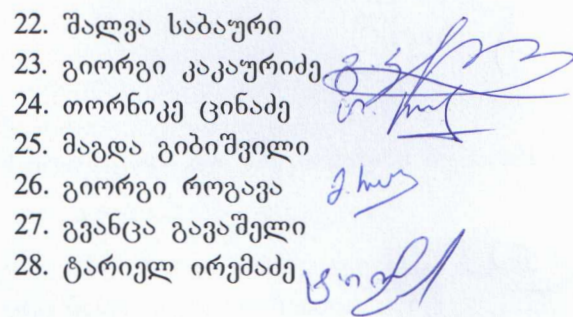 22. შალვა საბაური
23. გიორგი კაკაურიძე
24. თორნიკე ცინაძე
25. მაგდა გიბიშვილი
26. გიორგი როგავა
27. გვანცა გავაშელი
28. ტარიელ ირემაძე